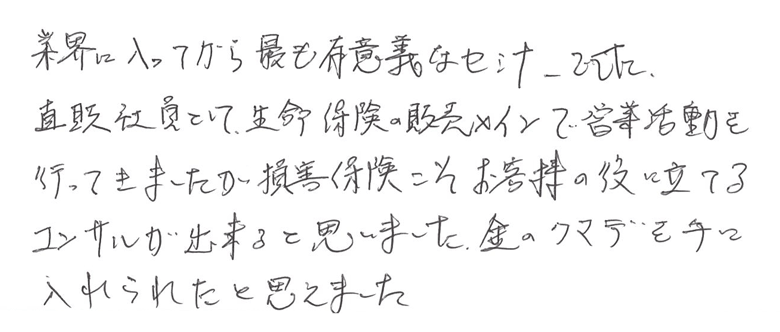 業界に入ってから最も有意義なセミナーでした、
直販社員として、生命保険の販売メインで営業活動を
行ってきましたが、損害保険こそお客様の役に立てる
コンサルが出来ると思いました。金のクマデを手に
入れられたと思えました